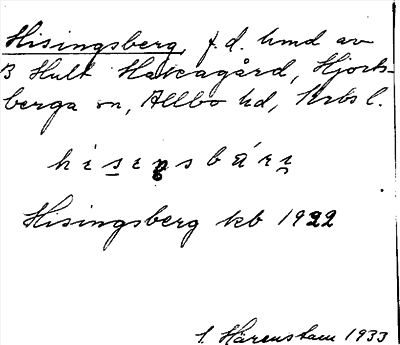 Hisingsberg, f.d. hmd av
B Hult Hakagård, Hjorts-
berga sn, Allbo hd, Krbs l.
h i s i ŋ s b ä r i
Hisingsberg kb 1922
S. Härenstam 1933